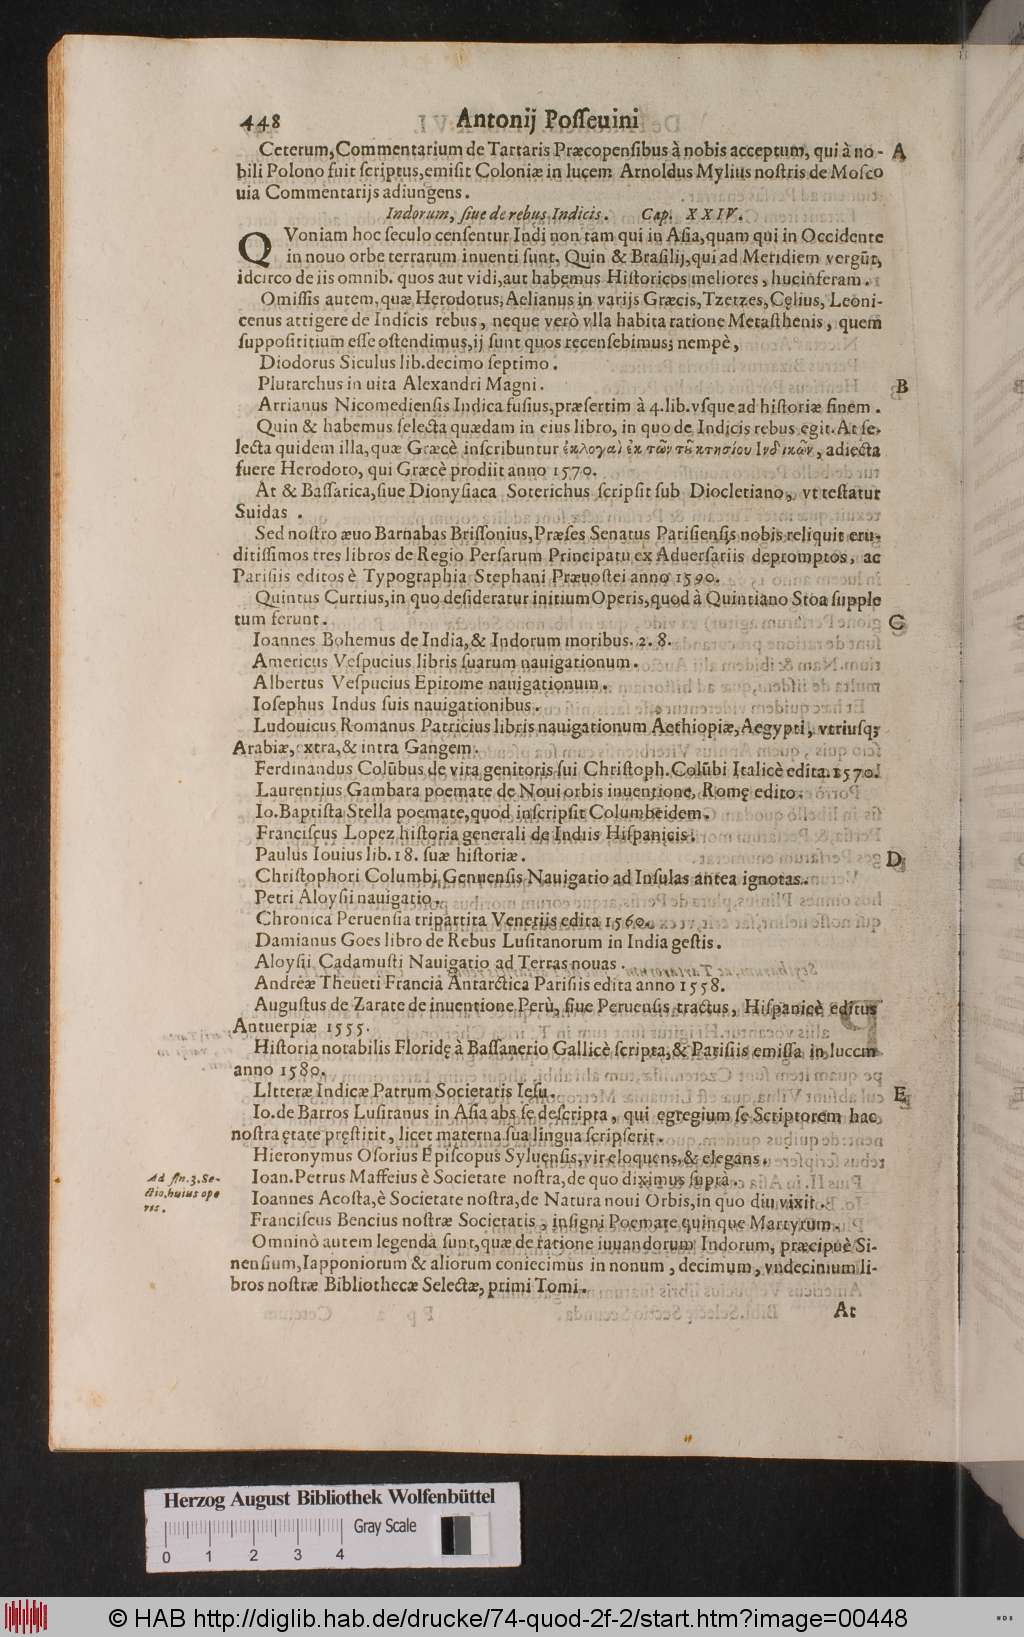 448 Antonij Poſſeuini
Ceterum, Commentarium de Tartaris Præcopenſibus à nobis acceptum, qui à no- A
bili Polono fuit ſcriptus, emiſit Coloniæ in lucem Arnoldus Mylius noſtris de Moſco
uia Commentarijs adiungens.
Indorum, ſiue de rebus Indicis. Cap. XXIV.
QVoniam hoc ſeculo cenſentur Indi non tam qui in Aſia, quam qui in Occidente
in nouo orbe terrarum inuenti ſunt, Quin & Braſilij, qui ad Meridiem vergūt,
idcirco de iis omnib. quos aut vidi, aut habemus Hiſtoricos meliores, huc inferam.
Omiſſis autem, quæ Herodotus, Aelianus in varijs Græcis, Tzetzes, Cęlius, Leoni-
cenus attigere de Indicis rebus, neque verò vlla habita ratione Metaſthenis, quem
ſuppoſititium eſſe oſtendimus, ij ſunt quos recenſebimus; nempè,
Diodorus Siculus lib. decimo ſeptimo.
Plutarchus in uita Alexandri Magni. B
Arrianus Nicomedienſis Indica fuſius, præſertim à 4. lib. vſque ad hiſtoriæ finem.
Quin & habemus ſelecta quædam in eius libro, in quo de Indicis rebus egit. At ſe-
lecta quidem illa, quæ Græcè inſcribuntur ἐκλογαὶ ἐκ τῶν τῦ κτησίου Ινδικῶν, adiecta
fuere Herodoto, qui Græcè prodiit anno 1570.
At & Baſſarica, ſiue Dionyſiaca Soterichus ſcripſit ſub Diocletiano, vt teſtatur
Suidas.
Sed noſtro æuo Barnabas Briſſonius, Præſes Senatus Pariſienſis nobis reliquit eru-
ditiſſimos tres libros de Regio Perſarum Principatu ex Aduerſariis depromptos, ac
Pariſiis editos è Typographia Stephani Præuoſtei anno 1590.
Quintus Curtius, in quo deſideratur initium Operis, quod à Quintiano Stoa ſupple
tum ferunt. C
Ioannes Bohemus de India, & Indorum moribus. 2. 8.
Americus Veſpucius libris ſuarum nauigationum.
Albertus Veſpucius Epitome nauigationum.
Ioſephus Indus ſuis nauigationibus.
Ludouicus Romanus Patricius libris nauigationum Aethiopiæ, Aegypti, vtriuſq;
Arabiæ, extra, & intra Gangem.
Ferdinandus Colūbus de vita genitoris ſui Chriſtoph. Colūbi Italicè edita. 1570.
Laurentius Gambara poemate de Noui orbis inuentione, Romę edito.
Io. Baptiſta Stella poemate, quod inſcripſit Columbeidem.
Franciſcus Lopez hiſtoria generali de Indiis Hiſpanicis.
Paulus Iouius lib. 18. ſuæ hiſtoriæ. D
Chriſtophori Columbi Genuenſis Nauigatio ad Inſulas antea ignotas.
Petri Aloyſii nauigatio.
Chronica Peruenſia tripartita Venetiis edita 1560.
Damianus Goes libro de Rebus Luſitanorum in India geſtis.
Aloyſii Cadamuſti Nauigatio ad Terras nouas.
Andreæ Theueti Francia Antarctica Pariſiis edita anno 1558.
Auguſtus de Zarate de inuentione Perù, ſiue Peruenſis tractus, Hiſpanicè editus
Antuerpiæ 1555.
Hiſtoria notabilis Floridę à Baſſanerio Gallicè ſcripta, & Pariſiis emiſſa in lucem
anno 1580.
LItteræ Indicæ Patrum Societatis Ieſu. E
Io. de Barros Luſitanus in Aſia abs ſe deſcripta, qui egregium ſe Scriptorem hac
noſtra ętate pręſtitit, licet materna ſua lingua ſcripſerit.
Hieronymus Oſorius Epiſcopus Syluenſis, vir eloquens, & elegans.
Ioan. Petrus Maffeius è Societate noſtra, de quo diximus ſuprà.
Ad fin. 3. Se-
ctio. huius ope
ris.
Ioannes Acoſta, è Societate noſtra, de Natura noui Orbis, in quo diu vixit.
Franciſcus Bencius noſtræ Societatis, inſigni Poemate quinque Martyrum.
Omninò autem legenda ſunt, quæ de ratione iuuandorum Indorum, præcipuè Si-
nenſium, Iapponiorum & aliorum coniecimus in nonum, decimum, vndecimum li-
bros noſtræ Bibliothecæ Selectæ, primi Tomi.
At
Herzog August Bibliothek Wolfenbüttel
Gray Scale
0 1 2 3 4
© HAB http://diglib.hab.de/drucke/74-quod-2f-2/start.htm?image=00448